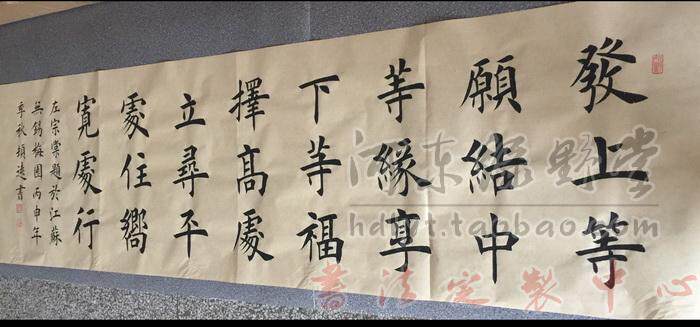 發上等
願結中
等緣享
下等福
擇高處
立尋平
處住嚮
寬處行
左宗棠題於江蘇
无錫梅園丙申年
季秋
書
河东绿野堂
hdlyt.taobao.com
書法定製中心